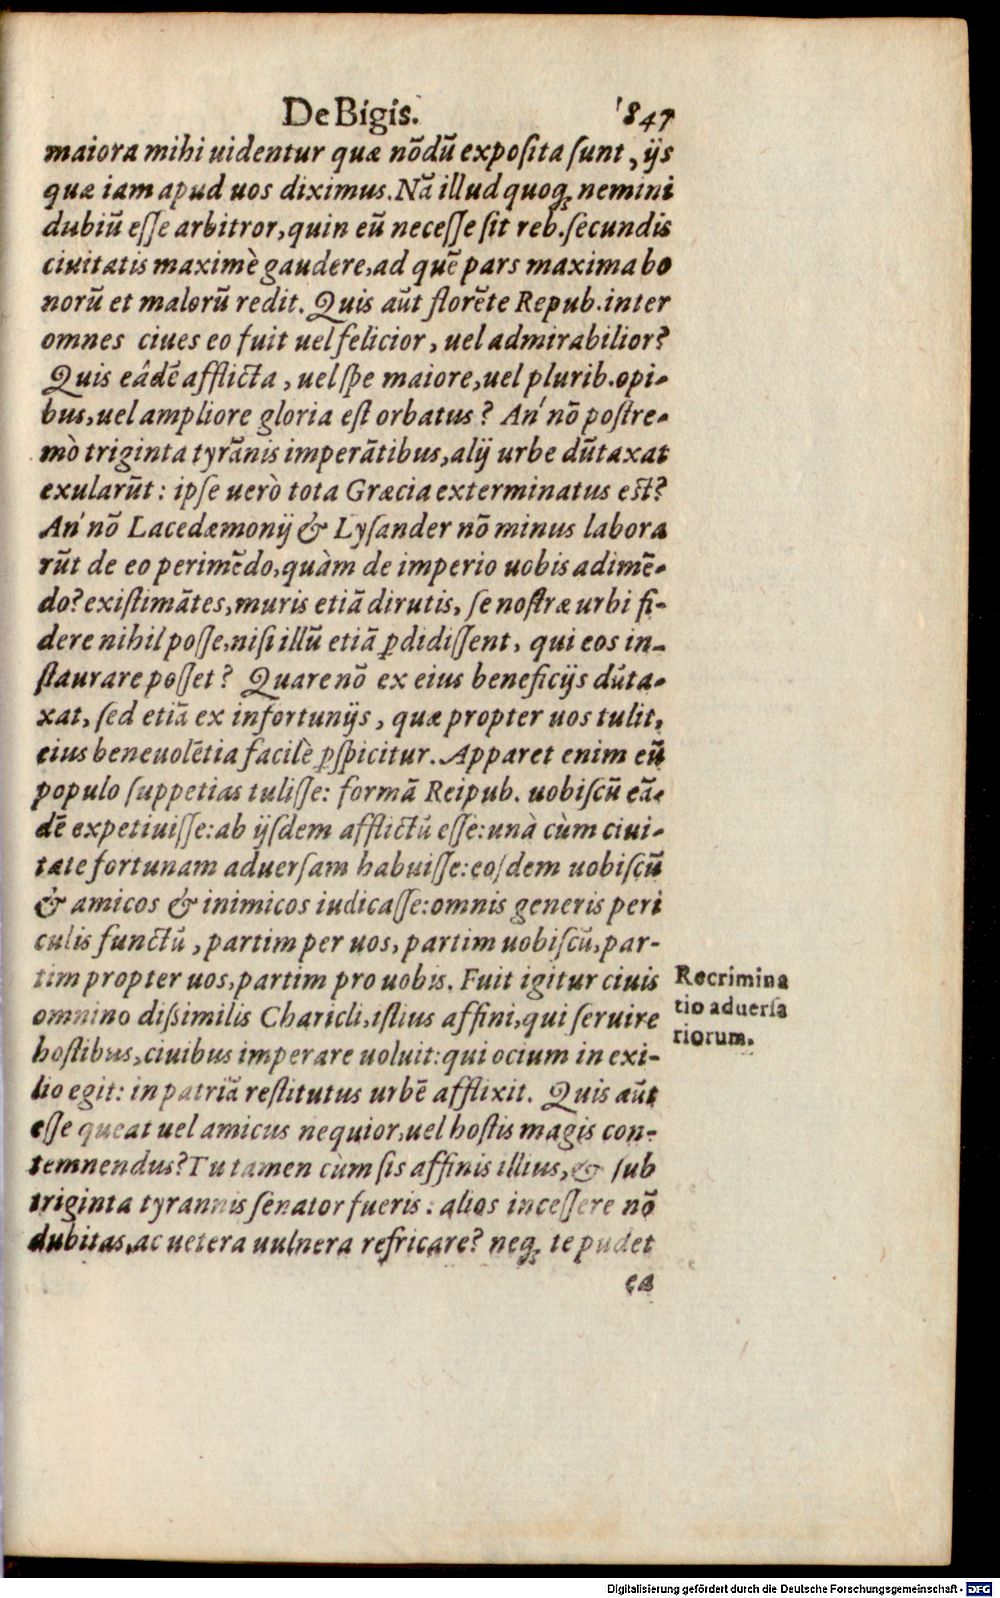 De Bigis. 847
maiora mihi uidentur quæ nõdũ expoſita ſunt, ijs
quæ iam apud uos diximus. Nã illud quoq; nemini
dubiũ eſſe arbitror, quin eũ neceſſe ſit reb. ſecundis
ciuitatis maximè gaudere, ad quẽ pars maxima bo
norũ et malorũ redit. Quis aũt florẽte Repub. inter
omnes ciues eo fuit uel felicior, uel admirabilior?
Quis eâdẽ afflicta, uel ſpe maiore, uel plurib. opi-
bus, uel ampliore gloria eſt orbatus? An' nõ poſtre-
mò triginta tyrãnis imperãtibus, alij urbe dũtaxat
exularũt: ipſe uerò tota Græcia exterminatus eſt?
An' nõ Lacedæmonij & Lyſander nõ minus labora
rũt de eo perimẽdo, quàm de imperio uobis adimẽ-
do? exiſtimãtes, muris etiã dirutis, ſe noſtræ urbi fi-
dere nihil poſſe, niſi illũ etiã ꝑdidiſſent, qui eos in-
ſtaurare poſſet? Quare nõ ex eius beneficijs dũta-
xat, ſed etiã ex infortunijs, quæ propter uos tulit,
eius beneuolẽtia facilè ꝑſpicitur. Apparet enim eũ
populo ſuppetias tuliſſe: formã Reipub. uobiſcũ eã-
dẽ expetiuiſſe: ab ijſdem afflictũ eſſe: unà cùm ciui-
tate fortunam aduerſam habuiſſe: eoſdem uobiſcũ
& amicos & inimicos iudicaſſe: omnis generis peri
culis functũ, partim per uos, partim uobiſcũ, par-
tim propter uos, partim pro uobis. Fuit igitur ciuis
omnino diſsimilis Charicli, iſtius affini, qui ſeruire
hoſtibus, ciuibus imperare uoluit: qui ocium in exi-
lio egit: in patriã reſtitutus urbẽ afflixit. Quis aũt
eſſe queat uel amicus nequior, uel hoſtis magis con-
temnendus? Tu tamen cùm ſis affinis illius, & ſub
triginta tyrannis ſenator fueris: alios inceſſere nõ
dubitas, ac uetera uulnera refricare? neq; te pudet
ea
Recrimina
tio aduerſa
riorum.
Digitalisierung gefördert durch die Deutsche Forschungsgemeinschaft - DFG